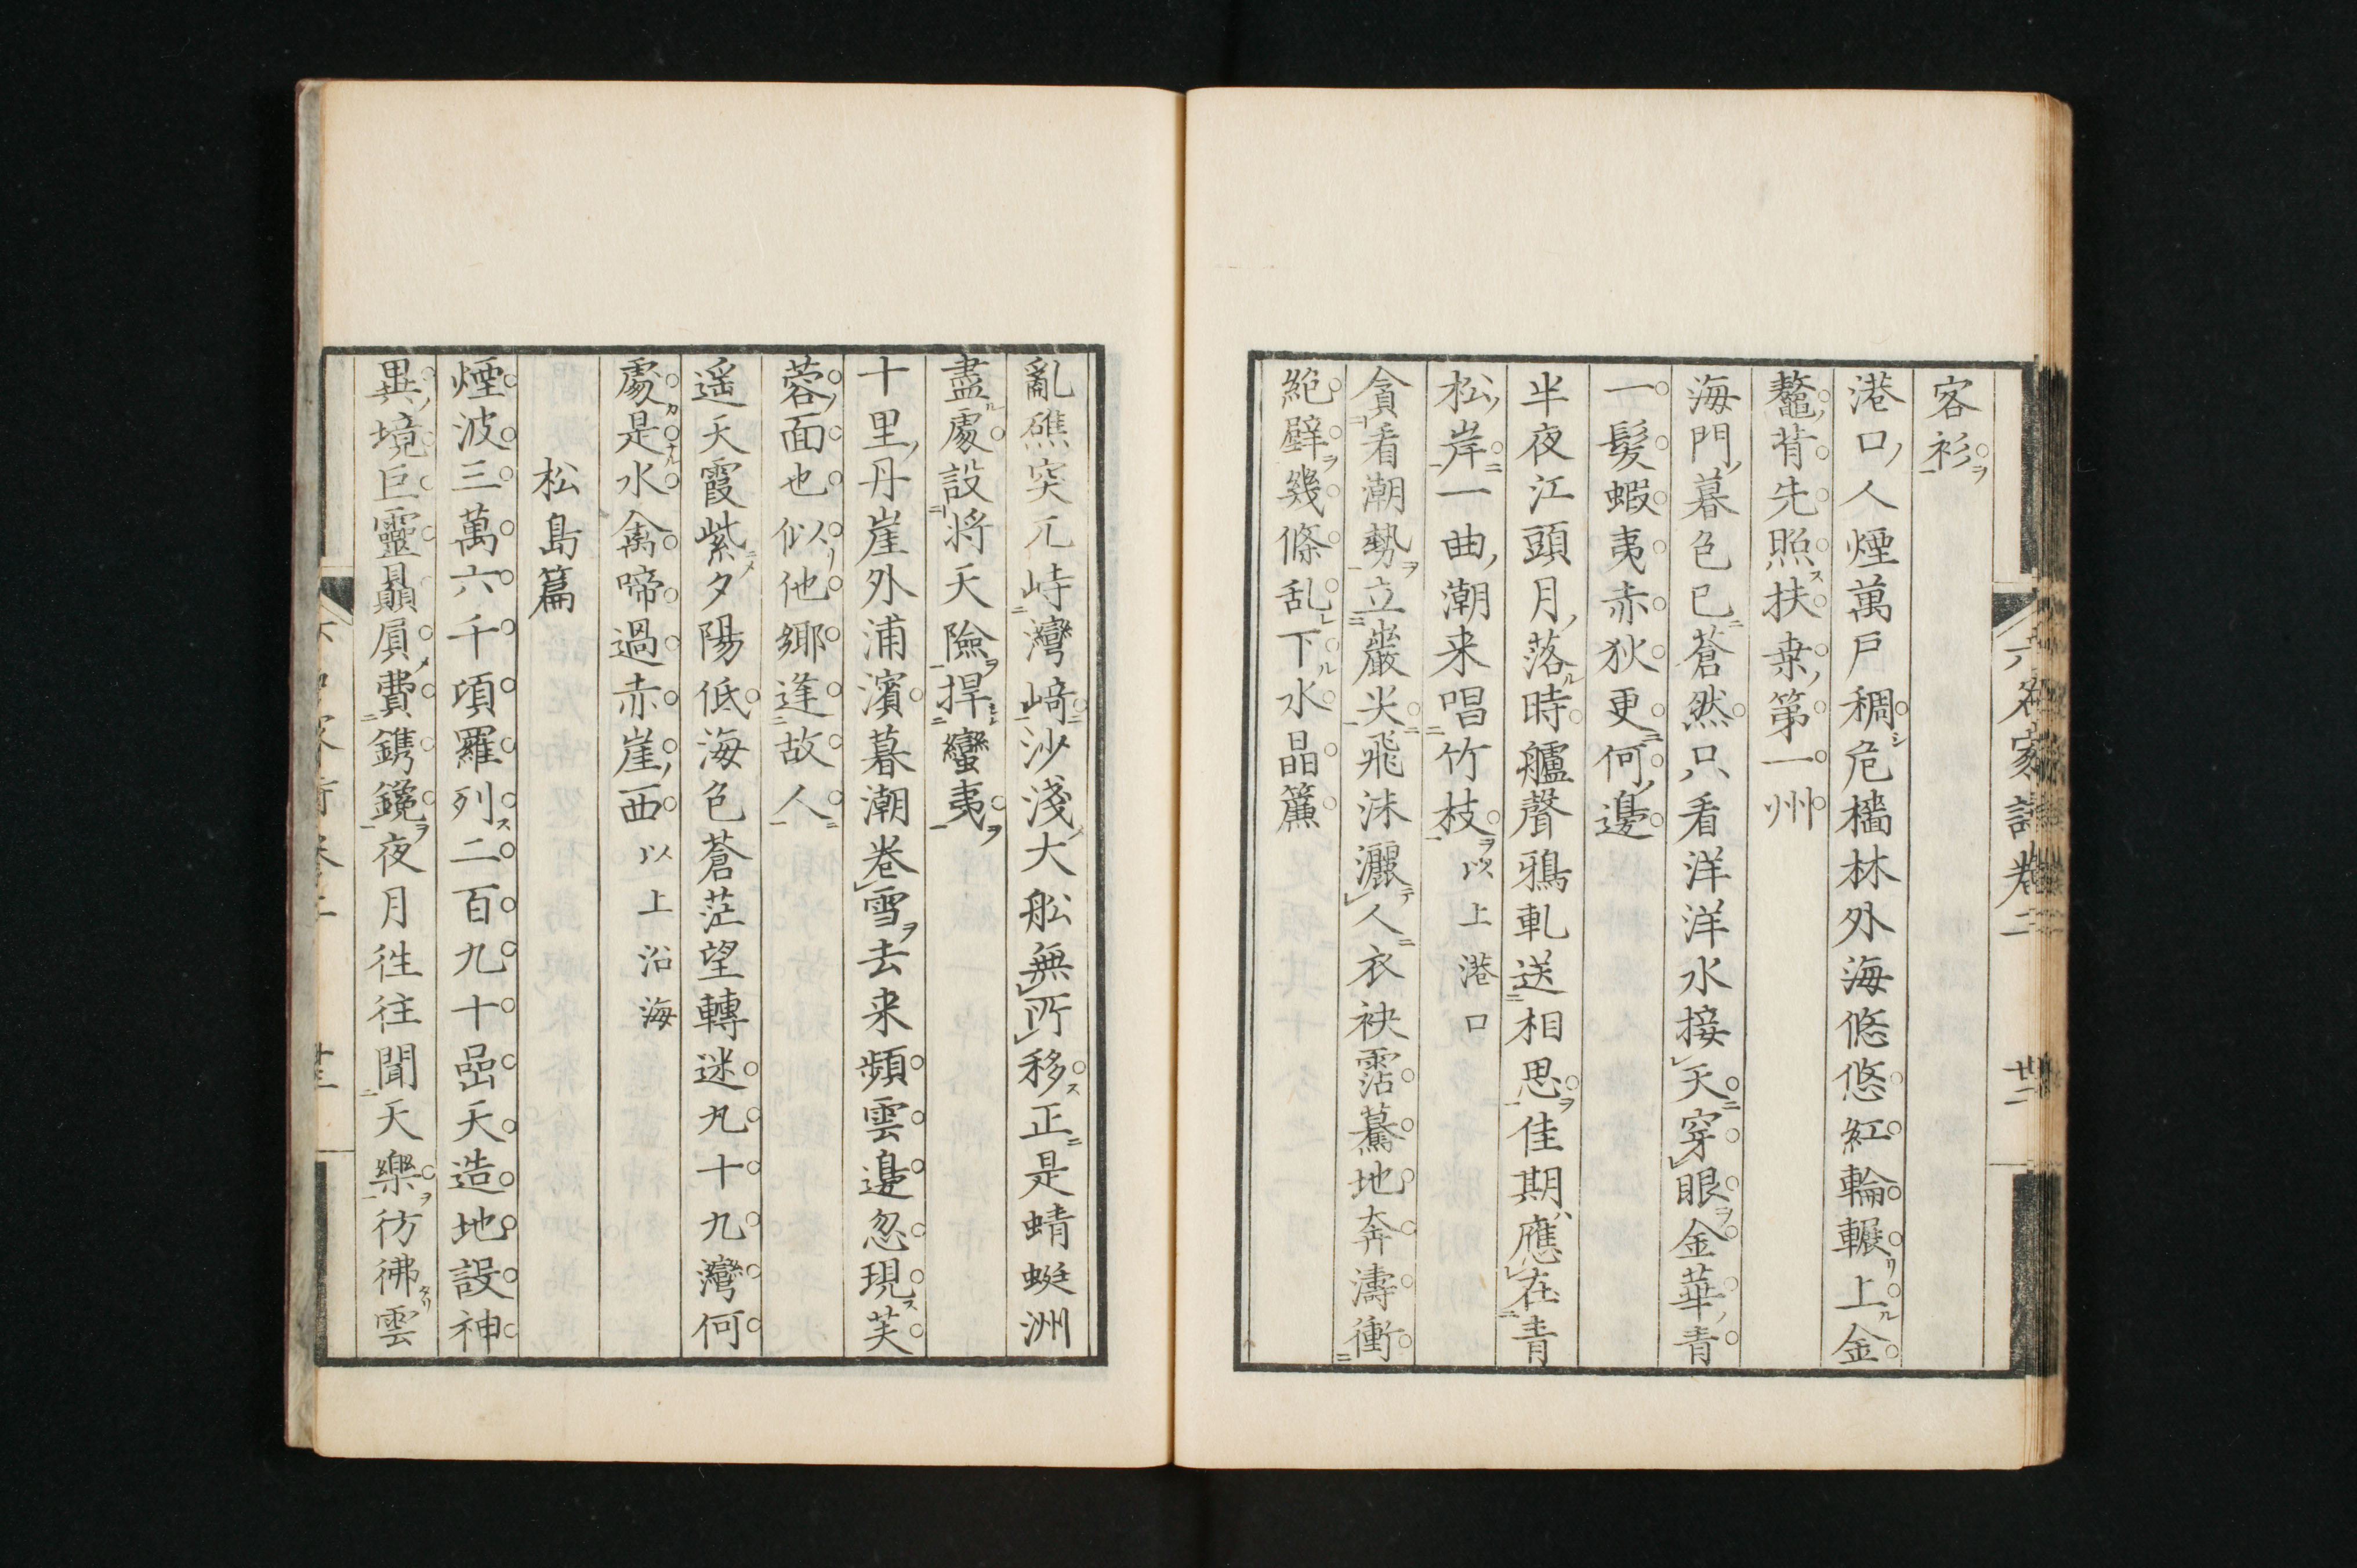 客衫
港口人煙萬戶稠危檣林外海悠悠紅輪輾上金
鼇背先照扶桒第一州
海門暮色已蒼然只看洋洋水接天穿眼金華青
一髮蝦夷赤狄更何邊
半夜江頭月落時艫聲鴉軋送相思佳期應在青
松岸一曲潮来唱竹枝以上港口
貪看潮勢立巖尖飛沫灑人衣袂霑驀地奔濤衝
絶壁幾條乱下水晶簾
六名家詩卷二
廿二
亂礁突兀峙灣﨑沙淺大舩無所移正是蜻蜓洲
盡處設將天險捍蠻夷
十里丹崖外浦濱暮潮卷雪去来頻雲邊忽現芙
蓉面也似他鄉逢故人
遥天霞紫夕陽低海色蒼茫望轉迷九十九灣何
處是水禽啼過赤崖西以上沿海
松島篇
煙波三萬六千頃羅列二百九十嵒天造地設神
異境巨靈贔屓費鐫鑱夜月往往聞天樂彷彿雲